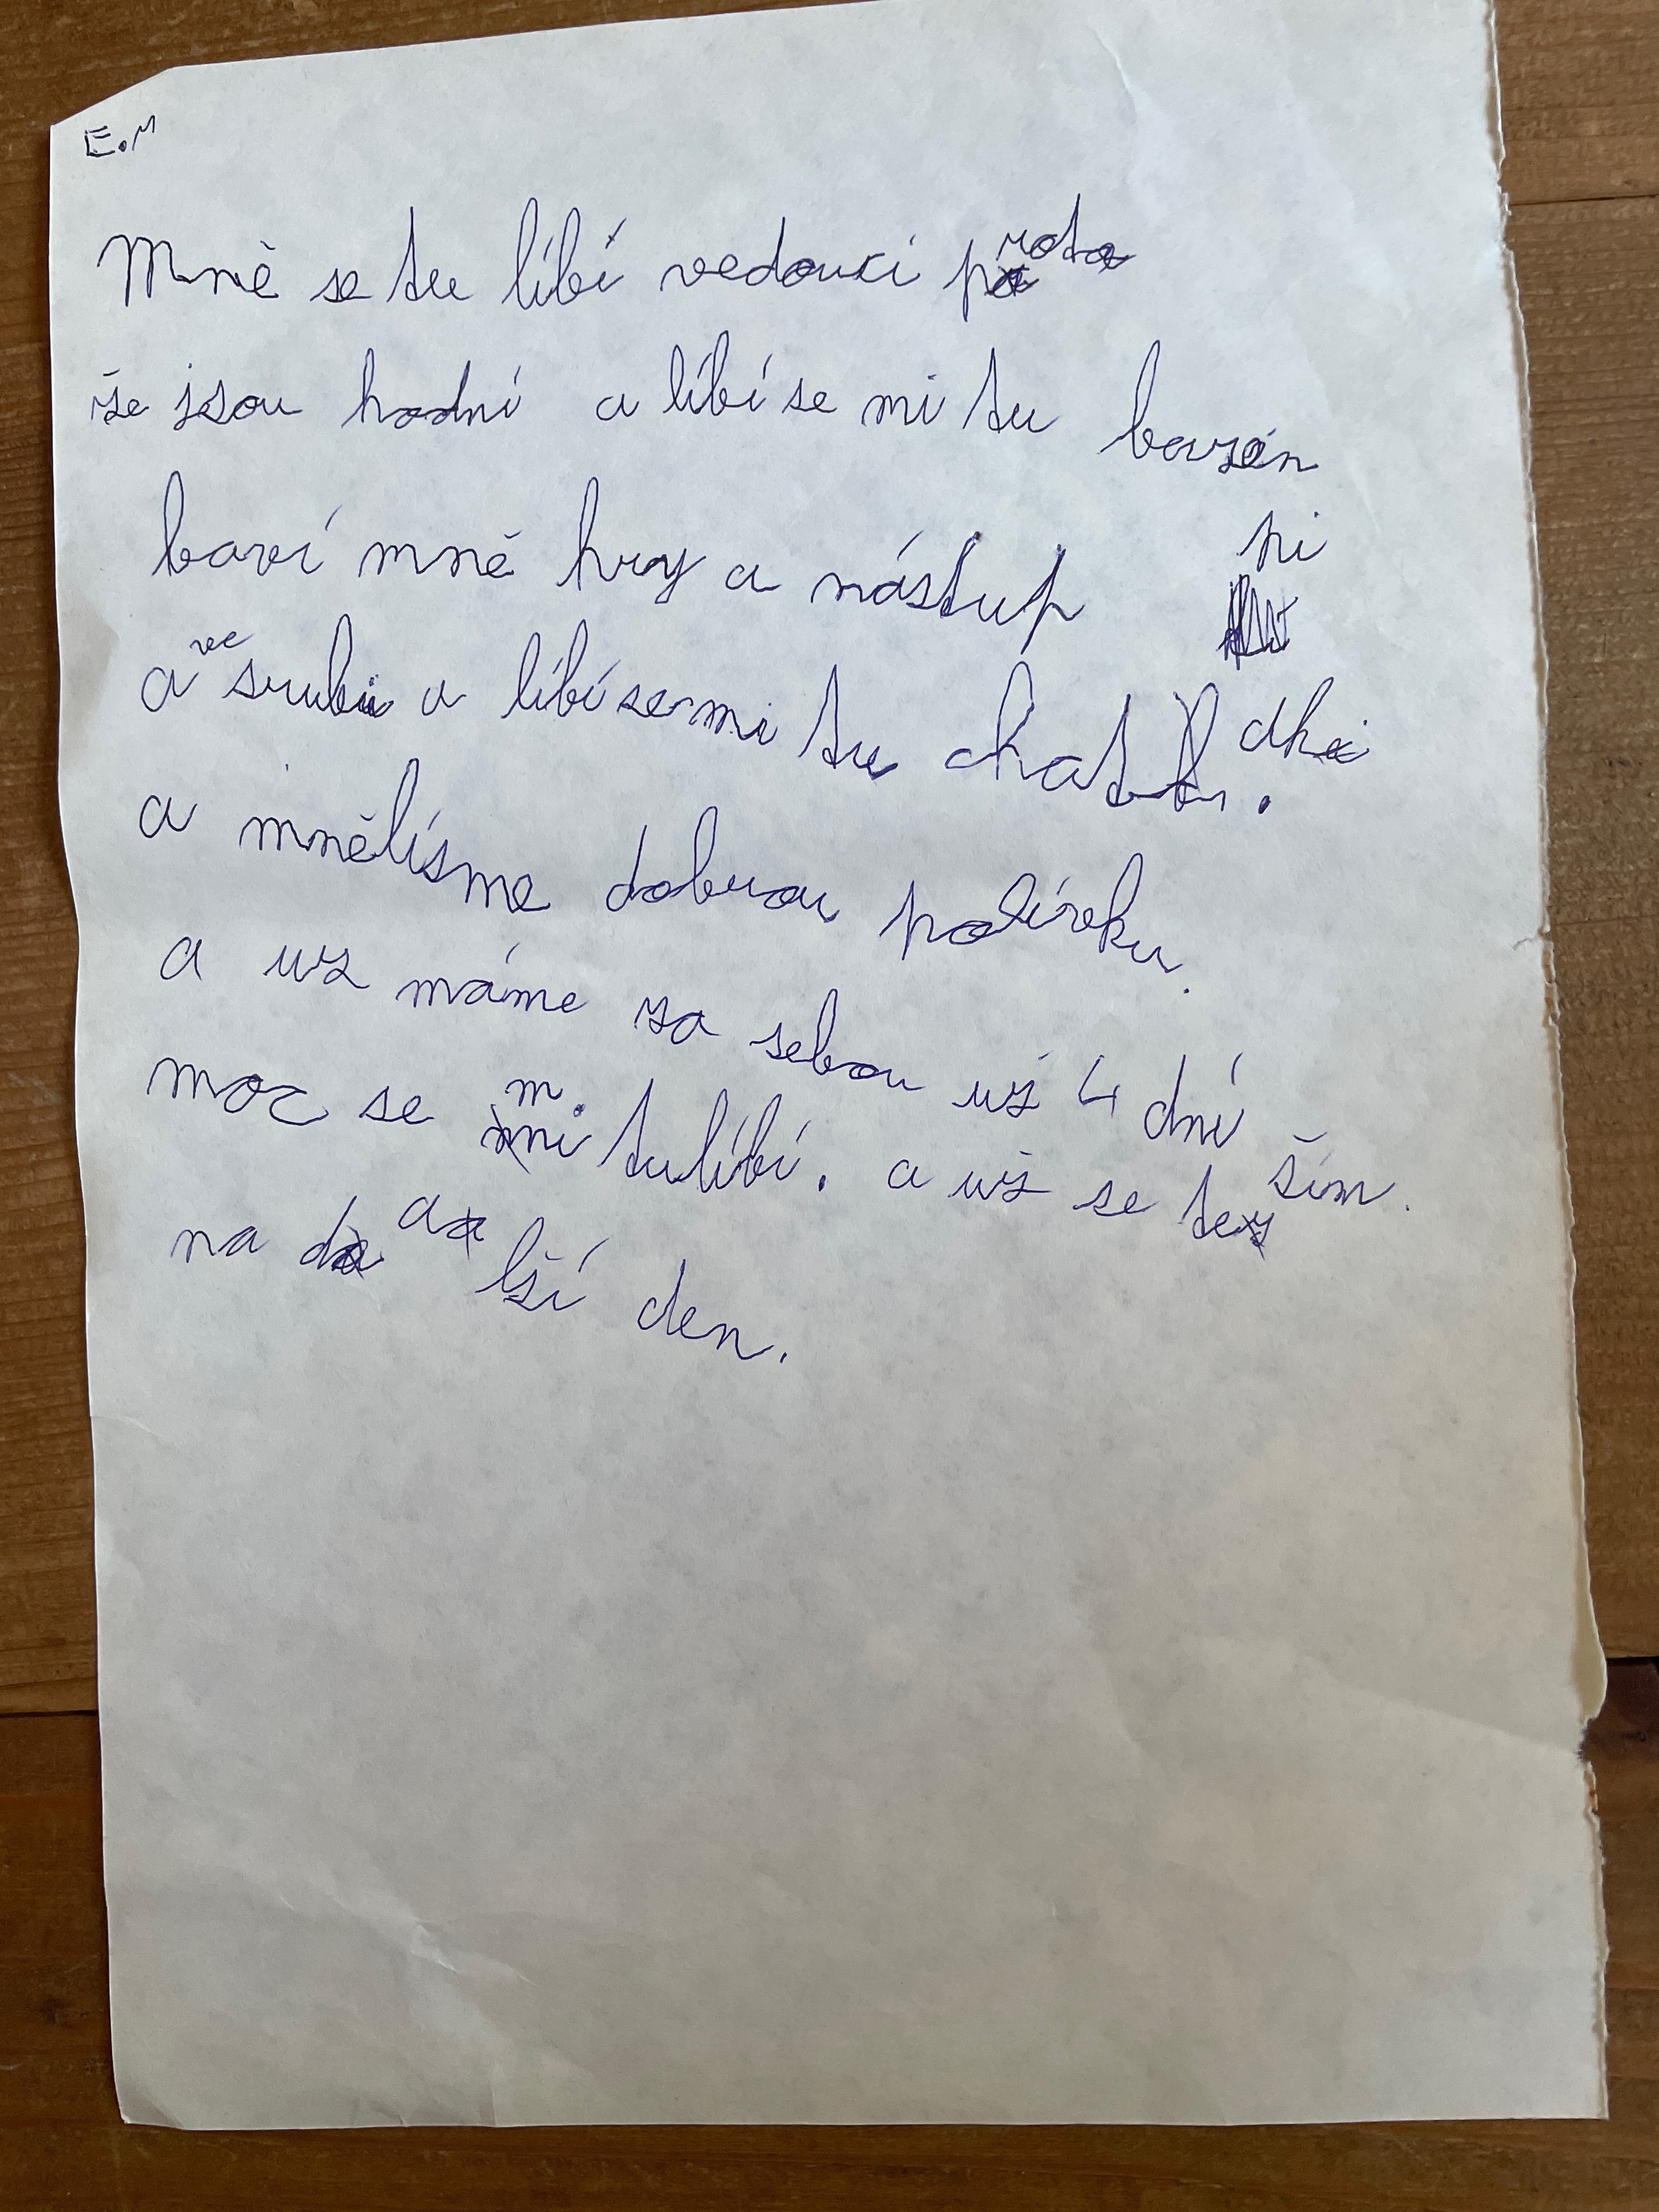 E.M
Mně se tu líbí vedouci proto
že jsou hodní a líbí se mi tu bazén
baví mně hry a nástup
a ve srubu a líbí se mi tu chat
a mnělísme dobrou polívku.
a uz máme za sebou už 4 dní
moc se mi tulíbí. a už se tešim.
na další den.